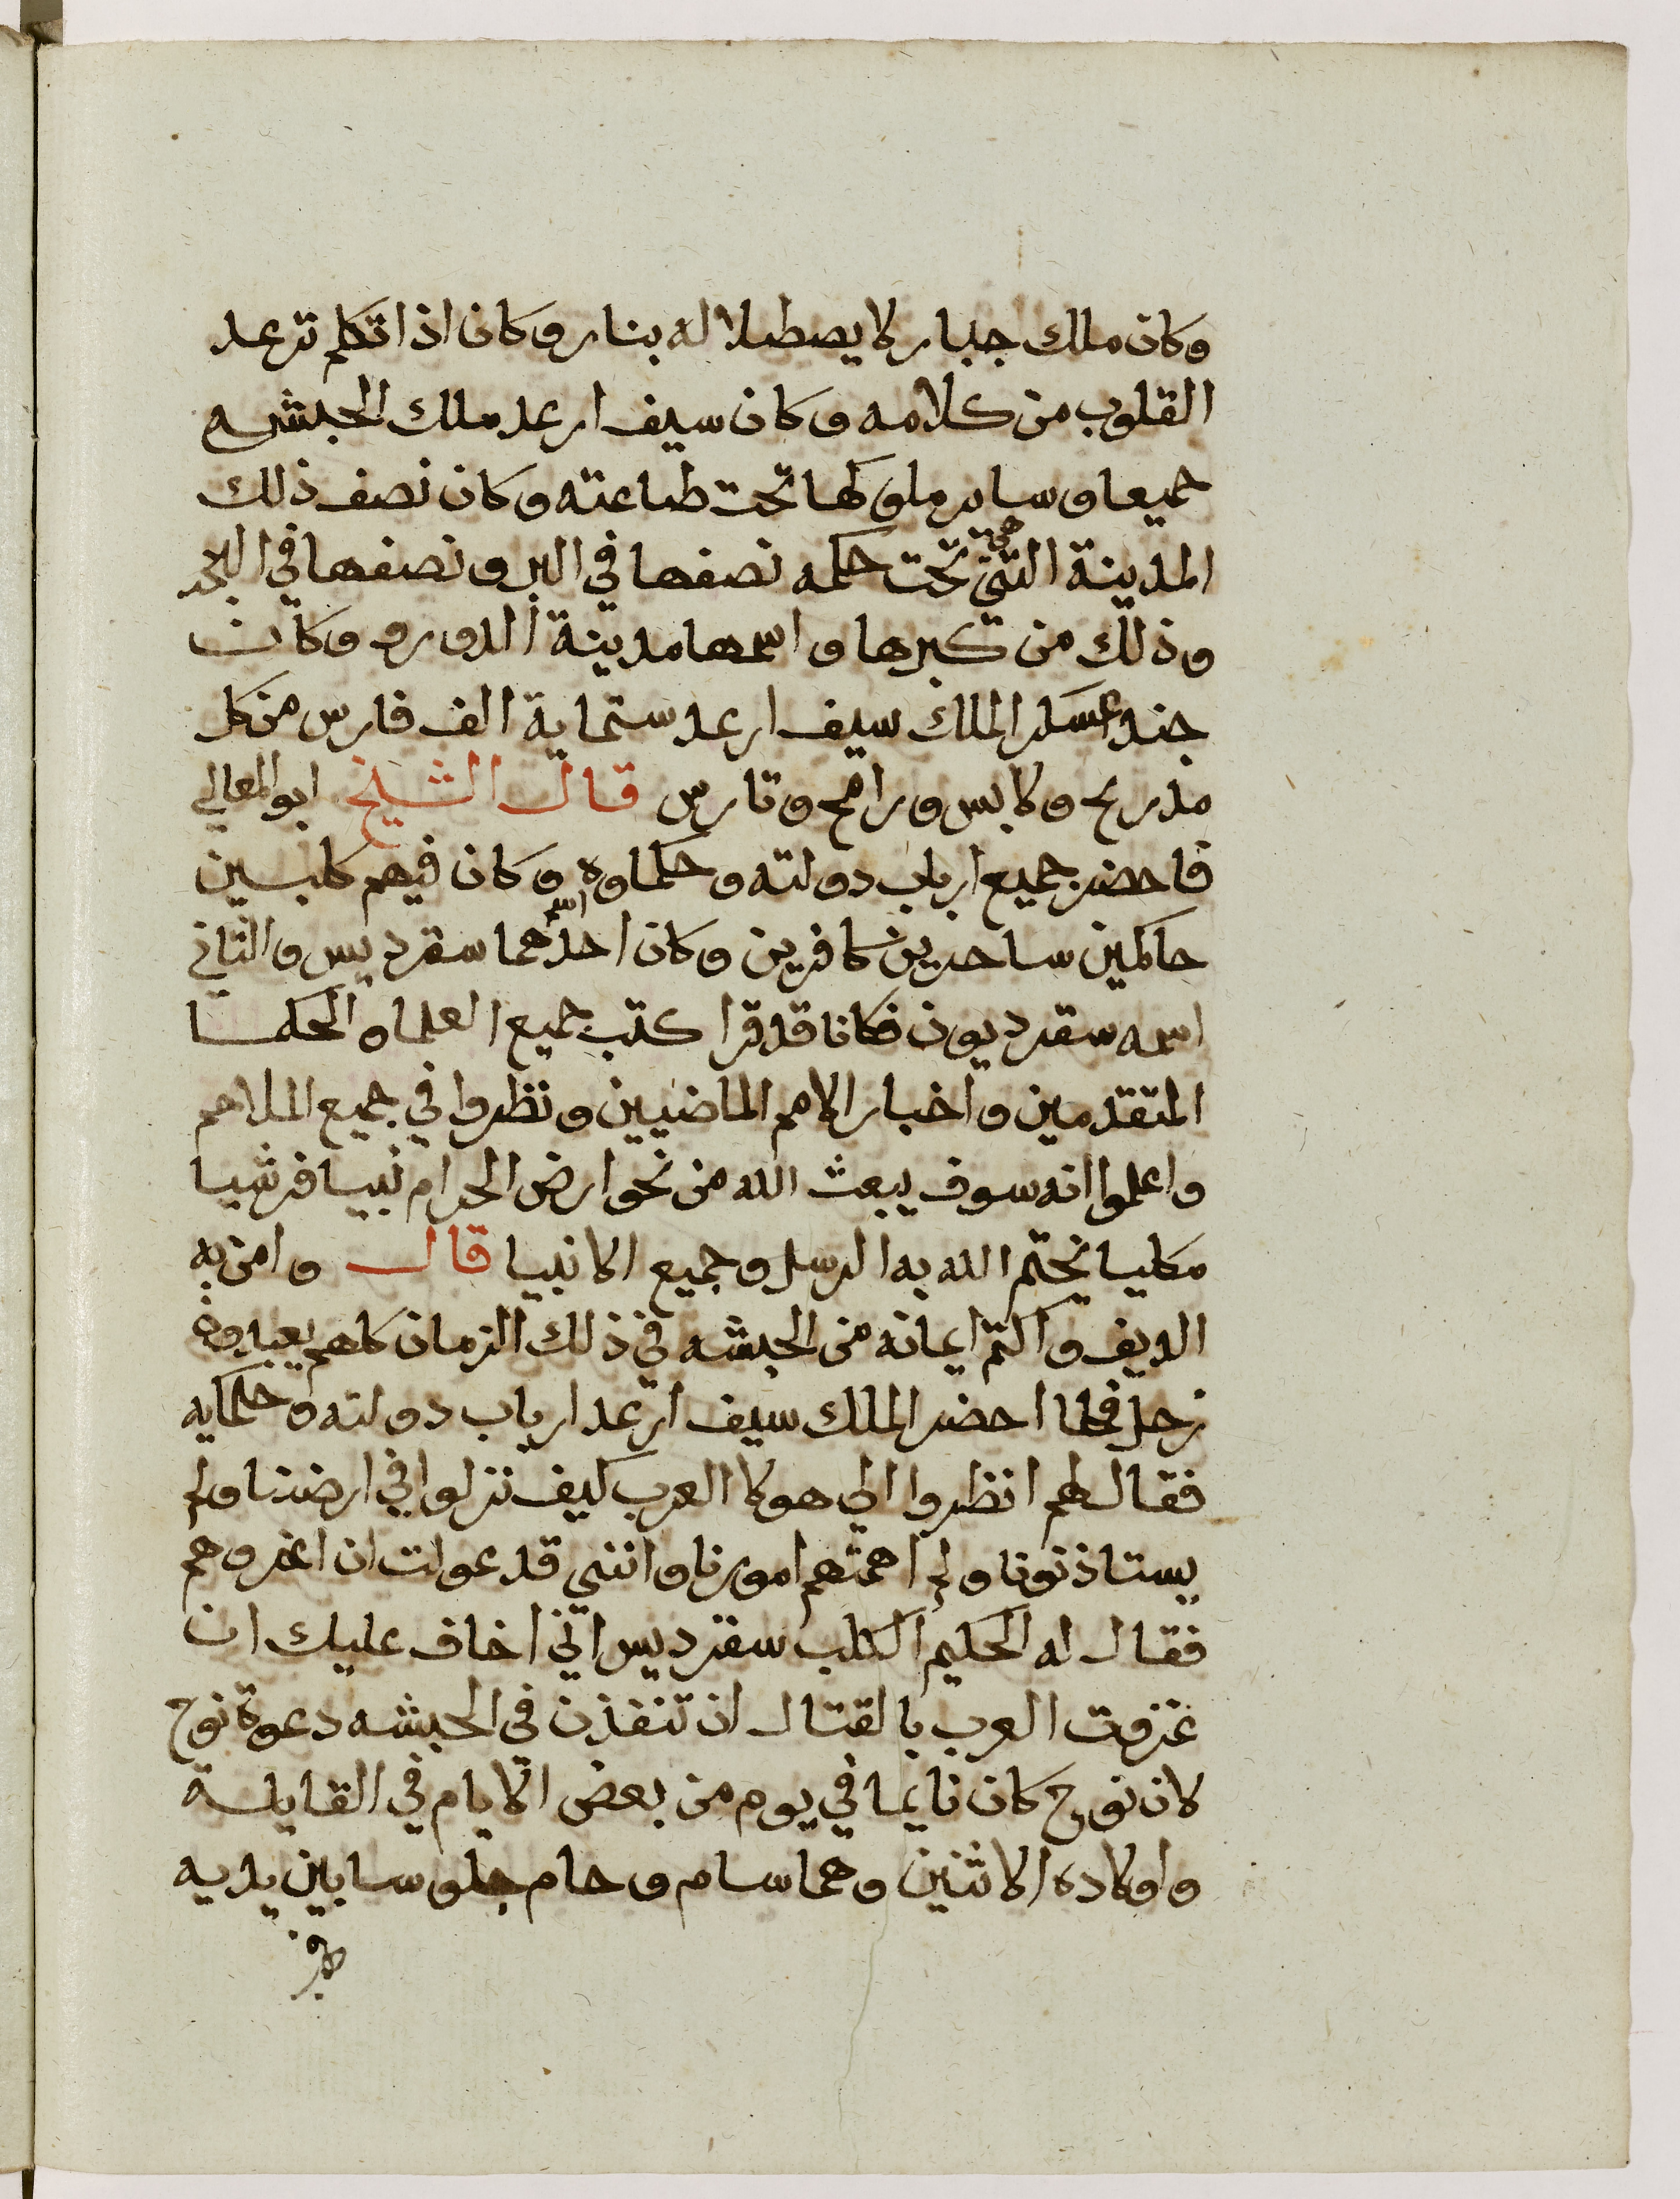 وكان ملك جبار لا يصطلا له بنار وكان اذا تكلم ترعد
القلوب من كلامه وكان سيف ارعد ملك الحبشه
جميعا وساير ملوكها تحت طاعته وكان نصف ذلك
المدينة التي هي تحت حكمه نصفها في البر ونصفها في البحر
وذلك من كبرها واسمها مدينة الدور وكان
جند عسكر الملك سيف ارعد ستماية الف فارس من كل
مدرع ولابس ورامح وتارس قال الشيخ ابو المعالي
فاحضر جميع ارباب دولته وحكماوه وكان فيهم كلبين
حاكمين ساحرين كافرين وكان اسم احدهما سقرديس والثاني
اسمه سقرديون فكانا قد قرا كتب جميع العلماء الحكما
المتقدمين واخبار الامم الماضيين ونظروا في جميع الملاحم
واعلموا انه سوف يبعث الله من نحو ارض الحرام نبيا قرشيا
مكيا يختم الله به الرسل وجميع الانبيا قال وامن به
الريف واكتم ايمانه من الحبشه في ذلك الزمان كلهم يعبدون
زحل فلما احضر الملك سيف ارعد ارباب دولته وحكمايه
فقال لهم انظروا الي هولا العرب كيف نزلوا في ارضنا ولم
يستاذنونا ولم اهمتهم امورنا وانني قد عولت ان اغزوهم
فقال له الحكيم الكلب سقرديس اني اخاف عليك ان
غزوت العرب بالقتال ان تنفذن في الحبشه دعوة نوح
لان نوح كان نايما في يوم من بعض الايام في القايلة
واولاده الاثنين وهما سام وحام جلوسا بين يديه